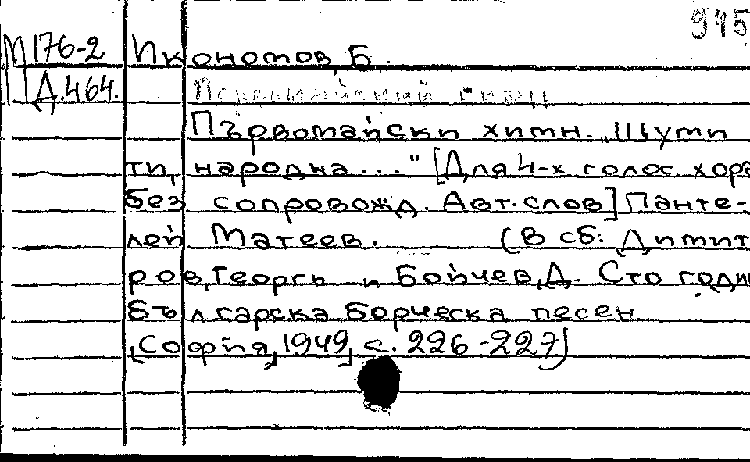 945
М176-2 Икономов, Б.
Д.464. Първомайский гимн
Първомайски химн. „Шуми
ти, народна..." [Для 4-х голос. хора
без сопровожд. Авт. слов] Панте-
лей Матеев. (В сб: Димит
ров, Георги и Бойчев, Д. Сто годин
българска борческа песен
[София, 1949] с. 226-227)